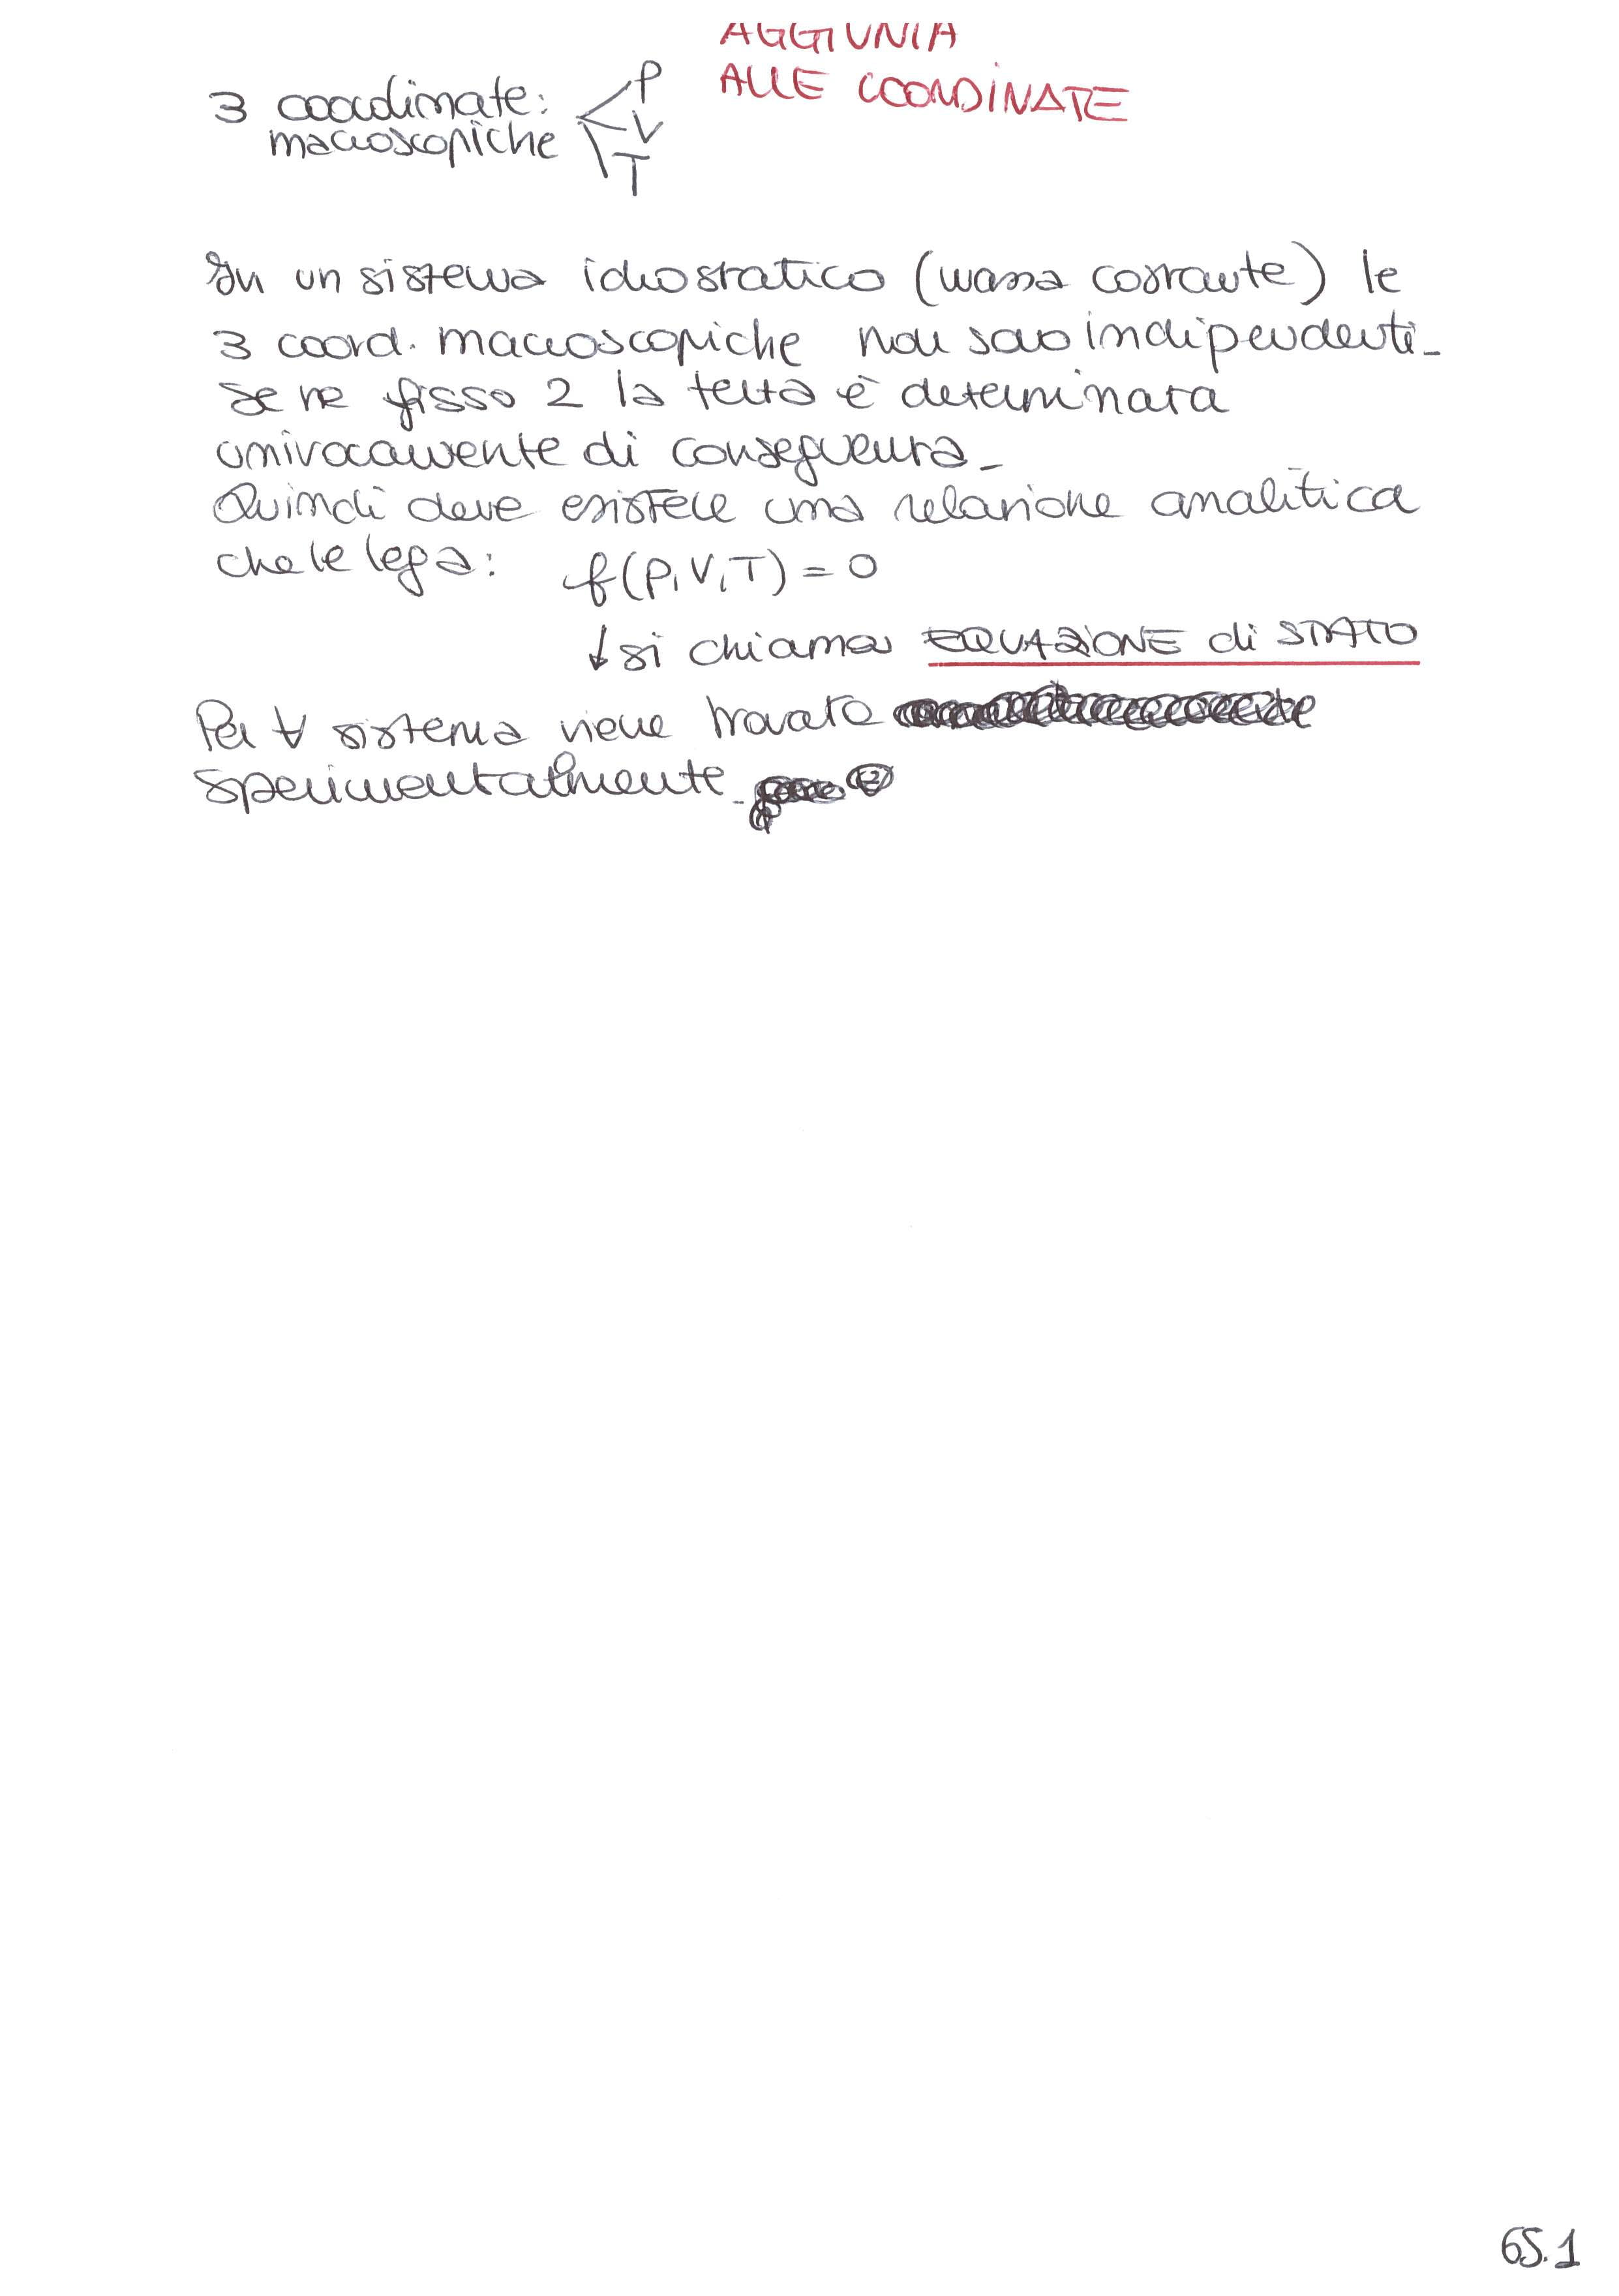 AGGIUNTA
ALLE COORDINATE
3 coordinate:
macroscopiche
P
V
T
In un sistema idrostatico (massa costante) le
3 coord. macroscopiche non sono indipendenti_
se ne fisso 2 la terza è determinata
univocamente di conseguenza_
Quindi deve esistere una relazione analitica
che le lega: f(P,V,T) = 0
↓ si chiama EQUAZIONE di STATO
Per ∀ sistema viene trovata
sperimentalmente_
65.1